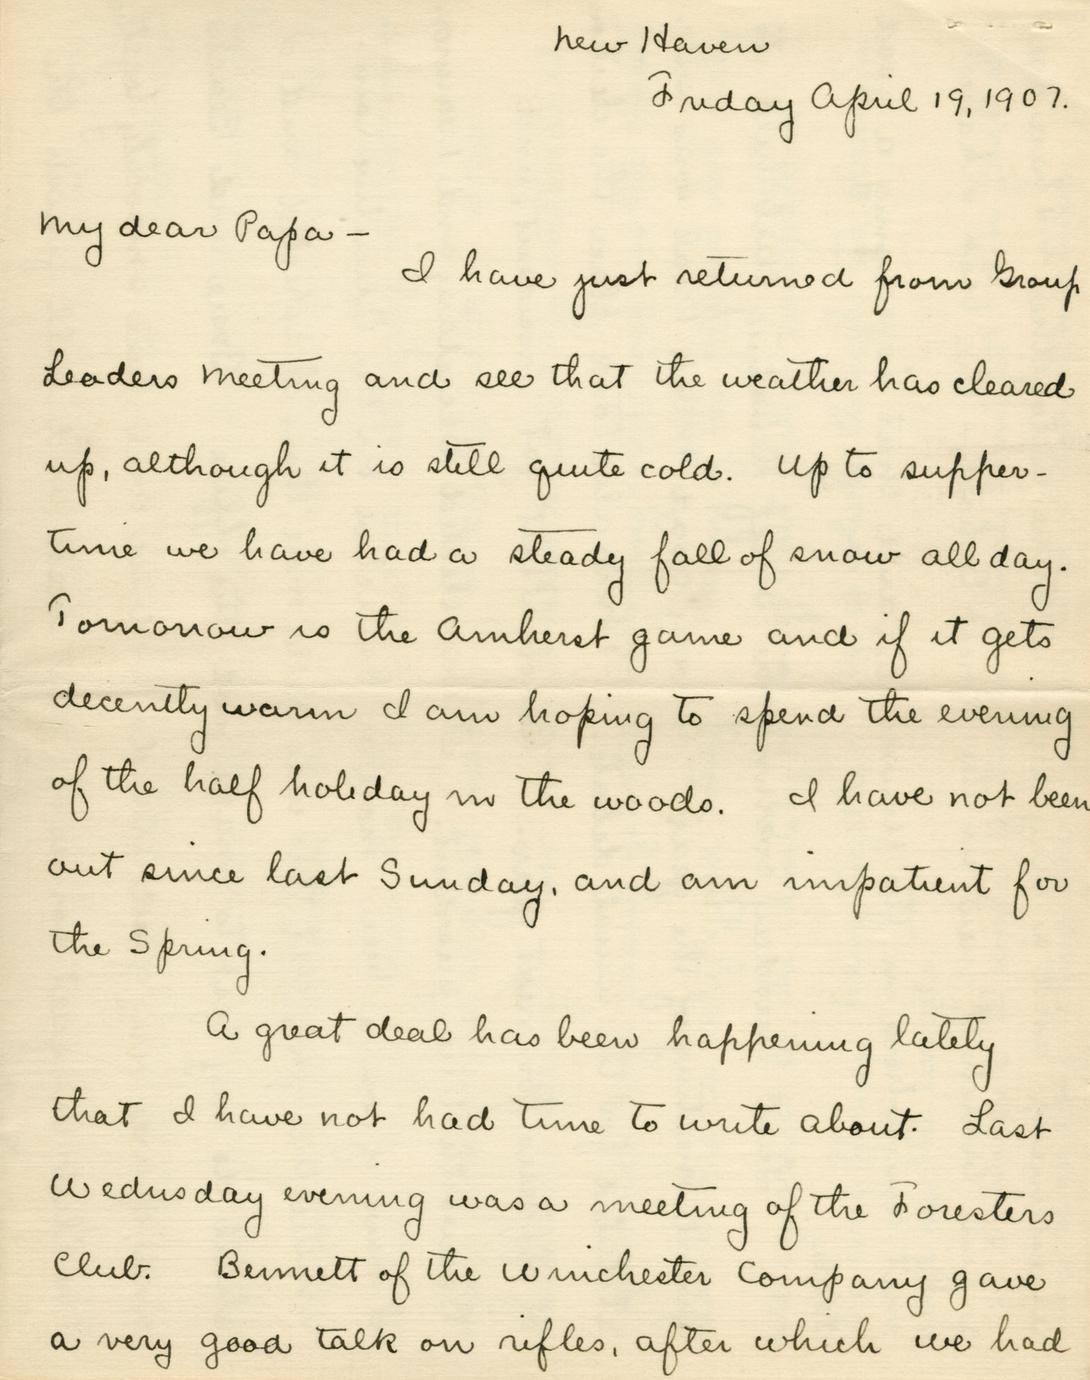 New Haven
Friday April 19, 1907.
My dear Papa —
I have just returned from Group
Leaders Meeting and see that the weather has cleared
up, although it is still quite cold. Up to supper-
time we have had a steady fall of snow all day.
Tomorrow is the Amherst game and if it gets
decently warm I am hoping to spend the evening
of the half holiday in the woods. I have not been
out since last Sunday, and am impatient for
the Spring.
A great deal has been happening lately
that I have not had time to write about. Last
Wednsday evening was a meeting of the Foresters
Club. Bennett of the Winchester Company gave
a very good talk on rifles, after which we had